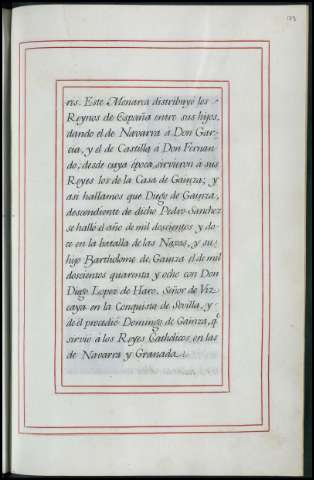 res. Este Monarca distribuyó los
Reynos de España entre sus hijos,
dando el de Navarra à Don Gar-
cia, y el de Castilla à Don Fernan-
do, desde cuya época, sirvieron à sus
Reyes los de la Casa de Gainza; y
asi hallamos que Diego de Gainza,
descendiente de dicho Pedro Sanchez
se halló el año de mil descientos y do-
ce en la batalla de las Navas, y su
hijo Bartholome de Gainza el de mil
descientos quarenta y ocho con Don
Diego Lopez de Haro, Señor de Viz-
caya en la Conquista de Sevilla, y
de él procedió Domingo de Gainza, q.e
sirvió à los Reyes Catholicos en las
de Navarra y Granada.